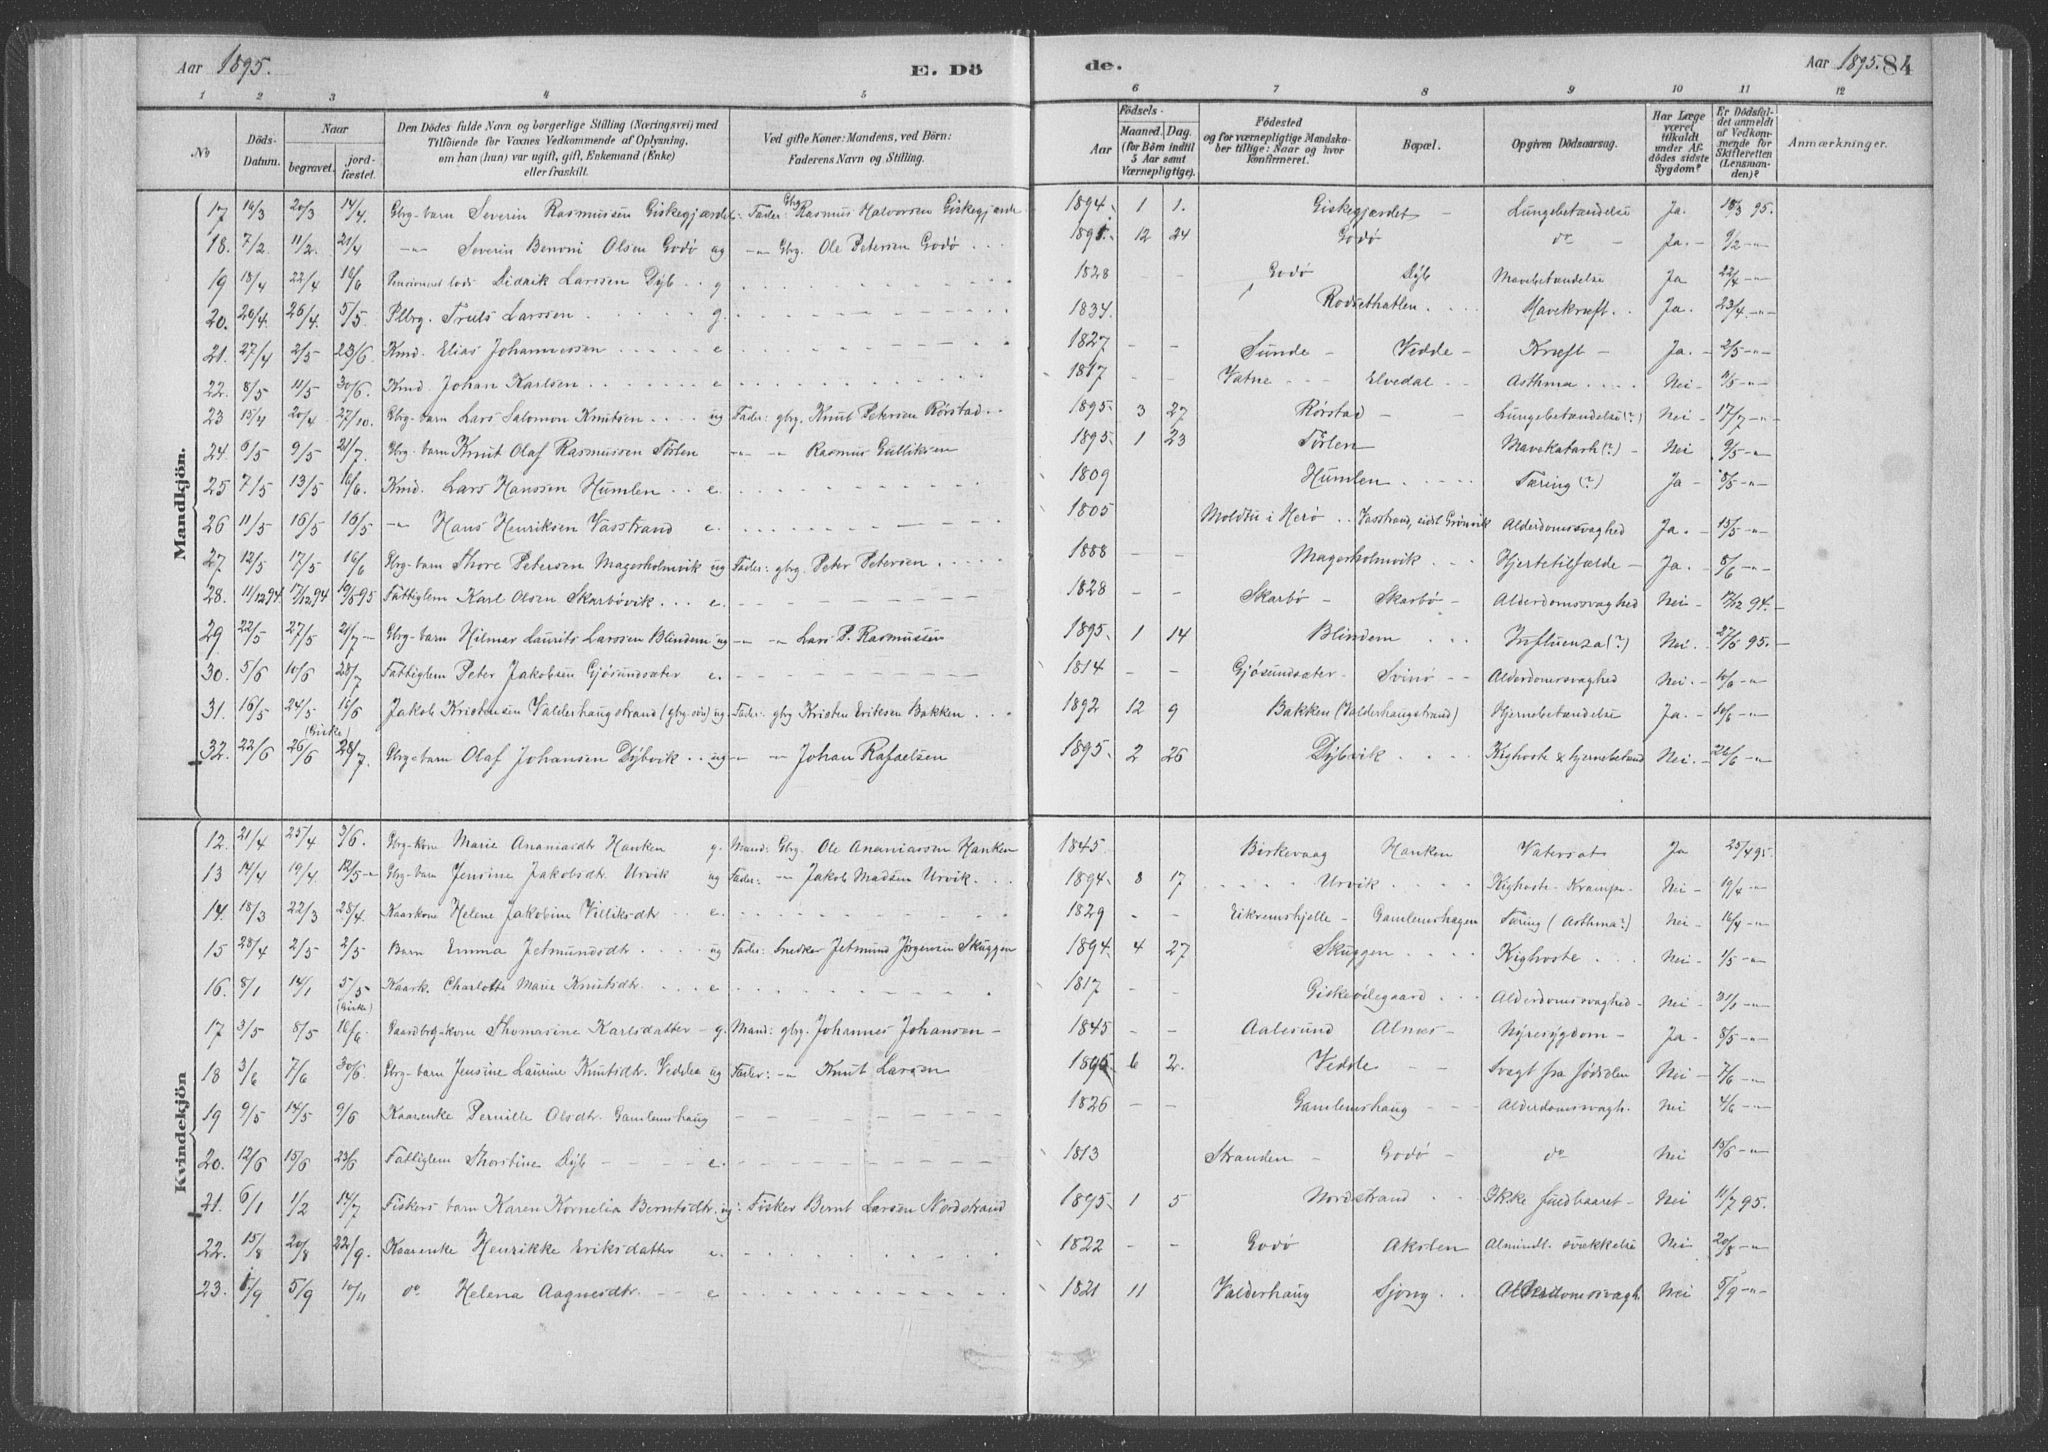 Aar 1895. E. Dö de. Aar 1895. 84
1 2 3 4 5 6 7 8 9 10 11 12
No Döds-Datum. Naar begravet. jordfæstet. Den Dödes fulde Navn og borgerlige Stilling (Næringsvei) med Tilföiende för Voxnes Vedkommende af Oplysning, om han (hun) var ugift, gift, Enkemand (Enke) eller fraskilt. Ved gifte Koner: Mandens, ved Börn: Faderens Navn og Stilling. Aar Födsels- Maaned. Dag. (for Börn indtil 5 Aar samt Værnepligtige). Födested og for værnepligtige Mandskaber tillige: Naar og hvor Konfirmeret. Bopæl. Opgiven Dödsaarsag. Har Læge været tilkaldt under Afdödes sidste Sygdom? Er Dödsfaldet anmeldt af Vedkommende for Skifteretten (Lensmanden)? Anmærkninger.
Mandkjön.
17 16/3 20/3 14/4. Gbrg-barn Severin Rasmussen Giskegjærdet: Fader: Gbrg Rasmus Halvorsen Giskegjærde 1894 1 1. Giskegjærdet – Lungebetændelse Ja. 18/3 95.
18. 7/2. 11/2. 21/4 –"– Severin Benoni Olsen Godø ug –"– Gbrg. Ole Petersen Godø 12 24 Godø do – Ja. – 9/2 –"–
19 18/4 22/4 16/6 Pensioneret lods Didrik Larssen Dyb g 1828 – – Godø Dyb Mavebetændelse Ja 22/4 –"
20. 20/4. 26/4. 5/5. Plbrg. Truls Larssen g. 1834. Rodsethatlen Mavekræft. Ja. 23/4. –"–
21. 27/4 2/5 23/6 Kmd. Elias Johannessen e 1827 – – Sunde – Vedde – Kræft – Ja. – 2/5 –"–
22. 8/5 11/5 30/6. Kmd Johan Karlsen e 1817 – – Vatne Elvedal Asthma Nei –"–
23 15/4 20/4 27/10. Gbrg-barn Lars Salomon Knutsen ug Fader: gbrg. Knut Petersen Rørstad 1895. 3 27 Rørstad – Lungebetændelse (?) Nei 17/7 –"–
24. 6/5 9/5 21/7. Gbrg-barn Knut Olaf Rasmussen Tørlen –"– –"– Rasmus Gulliksen 1895. 1 23 Tørlen Mavekatarh (?) – Nei 9/5 –"–
25 7/5 13/5 16/6. Kmd. Lars Hanssen Humlen e. 1809 Humlen Tæring (?) Ja – 8/5 –"
26 11/5 16/5 16/5 –"– Hans Henriksen Vasstrand e. 1805 Moldtu i Herø Vasstrand, sidst Grønvik Alderdomssvaghed Ja. – 15/5 –"–
27 12/5 17/5 16/6 Gbrg-barn Thore Petersen Magerholmvik ug Fader: gbrg. Peter Petersen 1888 – – Magerholmvik Hjertetilfælde – Ja. – 8/6 –"–
28. 11/12 94. 17/12 94 19/5 95 Fattiglem Karl Olsen Skarbøvik e. 1828 – – Skarbø – Skarbø – Alderdomssvaghed Nei – 17/12 94. –
29 22/5 27/5 21/7 – Gbrg-barn Hilmar Laurits Larssen Blindem ug –"– –"– Lars P. Rasmussen 1895. 1 14 Blindem Influenza (?) Nei. – 27/5 95. –
30. 5/6 10/6 28/7 Fattiglem Peter Jakobsen Gjøsundsæter e. 1814 – – Gjøsundsæter – Svinø – Alderdomssvaghed Nei. – 10/6 –"
31. 16/5 24/5 (Giske) 16/6 Jakob Kristensen Valderhaugstrand (gbrg-søn) ug Fader: gbrg Kristen Eriksen Bakken 1892 12 9 Bakken (Valderhaugstrand) Hjernebetændelse Ja. – 10/6 –"
32. 22/6 26/6 28/7. Gbrg-barn Olaf Johansen Dybvik ug –"– –"– Johan Rafaelsen 1895. 2 26 Dybvik Kighoste & hjernebetænd Nei. – 26/6 –"
Kvindekjön
12. 21/4 25/4 3/6. Gbrg-kone Marie Ananiasdtr Hanken g. Mand: Gbrg. Ole Ananiassen Hanken 1845 Birkevaag Hanken Vatersot Ja 25/4 95.
13 14/4 19/4. 12/5 –" Gbrg-barn Jensine Jakobsdtr. Urvik ug Fader: –"– Jakob Madsen Urvik. 1894. 8 17 Urvik Kighoste. Krampe. Nei – 19/4 –"
14. 18/3 22/3 28/4. Kaarkone Helene Jakobine Villiksdtr e. 1829 – – Eikremshjelle – Gamlemshagen Tæring (Asthma?) Nei – 16/4 –"–
15 28/4 2/5 2/5 Barn Emma Jetmundsdtr. ug Fader: Snedker Jetmund Jørgensen Skuggen 1894. 4 27 Skuggen Kighoste. Nei – 1/5 –"
16. 8/1 14/1 5/5 (Giske) Kaark. Charlotte Marie Knutsdtr. e 1817 – – Giskeødegaard Alderdomssvaghed – Nei –"–
17 3/5 8/5 16/6 Gaardbrg-kone Thomasine Karlsdatter – g. Mand: gbrg. Johannes Johansen – 1845 – – Aalesund Alnæs – Nyresygdom – Ja – 8/5 –"
18 3/6 7/6 30/6. Gbrg-barn Jensine Laurine Knutsdtr. Vedde ug Fader: –"– Knut Larsen 1895 6 2. Vedde – – Svagt fra fødselen Nei – 7/6 –"
19 9/5 14/5 9/6 Kaarenke Pernille Olsdtr. Gamlemshaug 1826 – – Gamlemshaug Alderdomssvagh. Nei 4/6 –"
20. 12/6 15/6 23/6 Fattiglem Thorstine Dyb e. 1813 Stranden – Godø – do Nei 15/6 –"
21. 6/1 1/2 14/7 Fiskers barn Karen Kornelia Berntsdtr. ug: Fisker Bernt Larsen Nordstrand 1895. 1 5 Nordstrand Ikke fuldbaaret – Nei 11/7 95.
22. 15/8 20/8 22/9. Kaarenke Henrikke Eriksdatter e. 1822 – – Godø Akslen Almindl. svækkelse Nei 20/8 –"
23. /9 5/9 10/11 do Helena Aagnesdtr. e 1821 11 Valderhaug Sjong Alderdomssvagh. Nei 5/9 –"